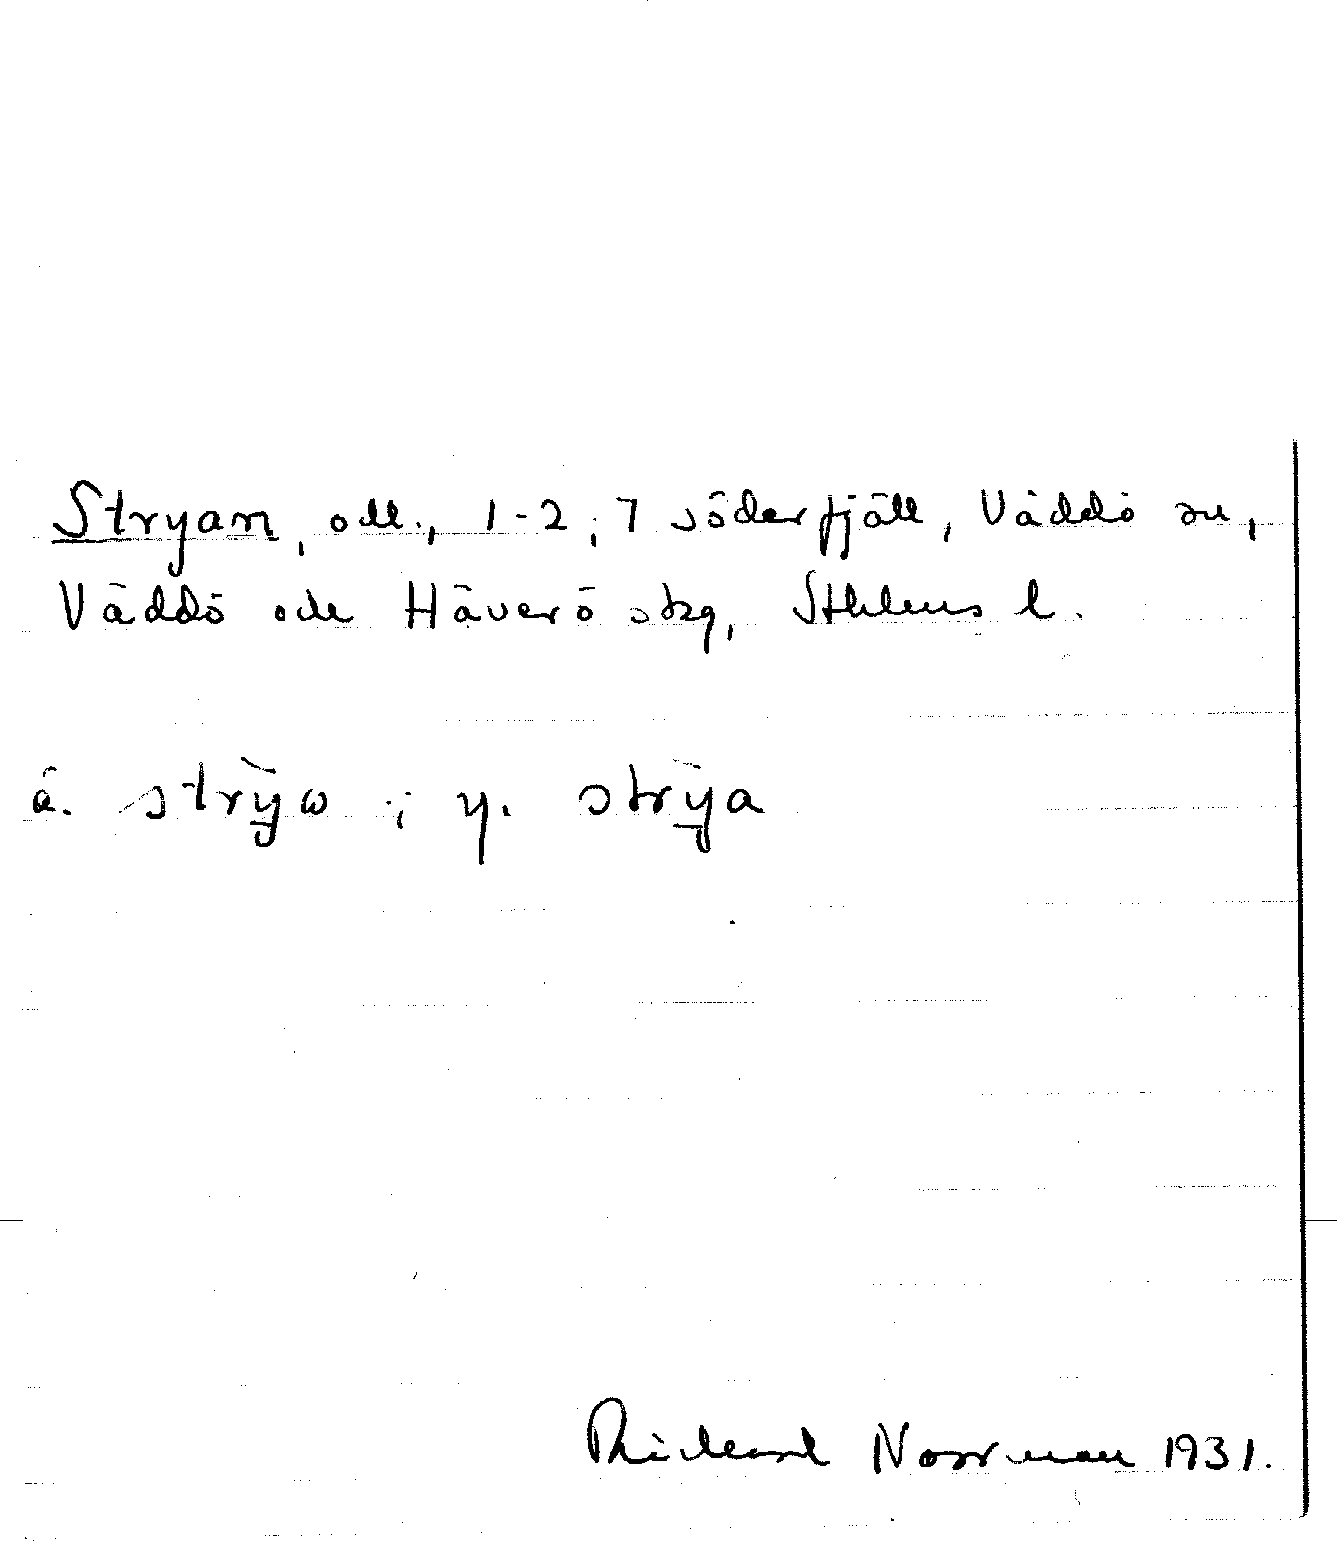 Stryan, odl., 1-2; 7 Söderfjäll, Väddö sn,
Väddö och Häverö skg, Sthlms l.
ä. strỳω ; y. strỳa
Richard Norrman 1931.